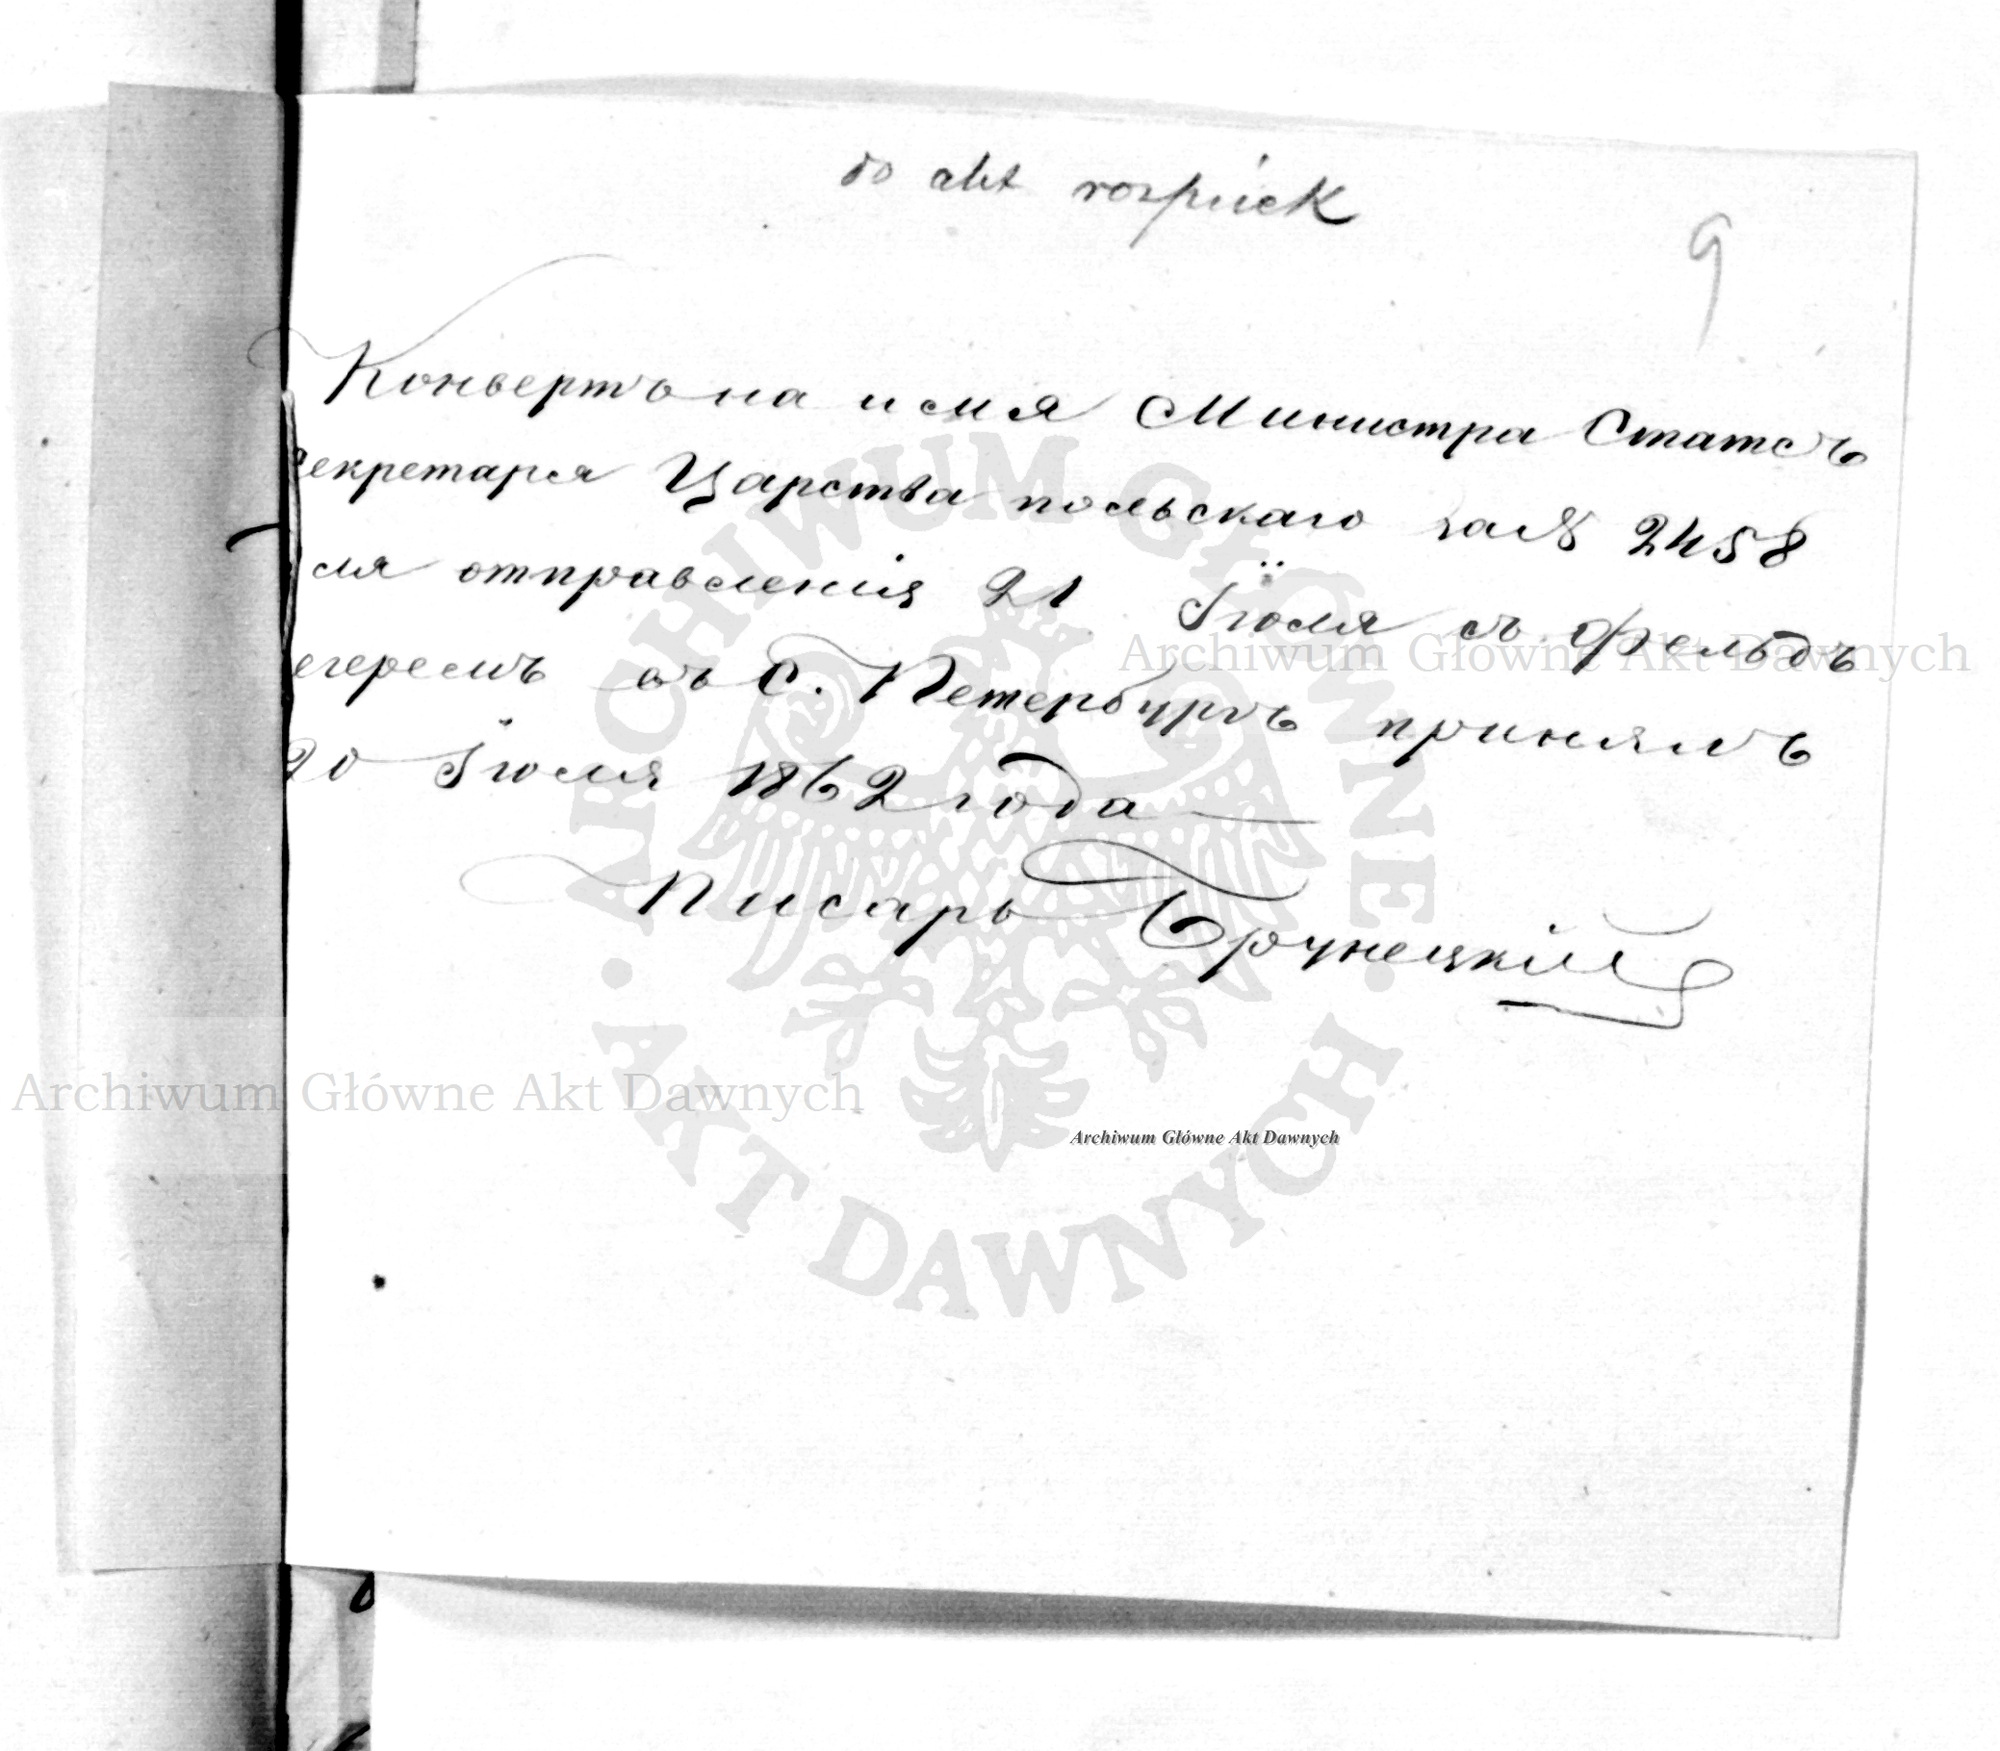 do akt rozpisek
9
Конвертъ на имя Министра Статсъ
секретаря Царства польскаго за № 2458
для отправленія 21 Іюля съ фельдъ
егеремъ въ С. Петербургъ принялъ
20 Іюля 1862 года
Писарь
Archiwum Główne Akt Dawnych
Archiwum Główne Akt Dawnych
Archiwum Główne Akt Dawnych
ARCHIWUM GŁÓWNE AKT DAWNYCH